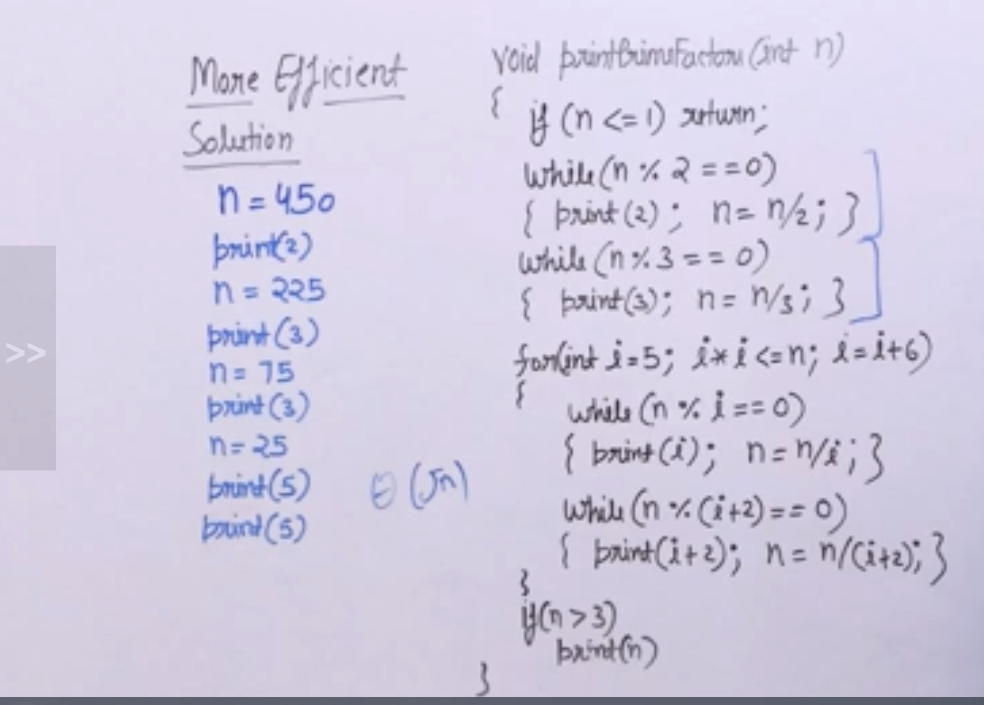 More Efficient
Solution
n = 450
print(2)
n = 225
print(3)
n = 75
print(3)
n = 25
print(5)
print(5)
Θ(√n)
void printPrimeFactors(int n)
{
if (n <= 1) return;
while (n % 2 == 0)
{ print(2); n = n/2; }
while (n % 3 == 0)
{ print(3); n = n/3; }
for(int i=5; i*i <= n; i=i+6)
{
while (n % i == 0)
{ print(i); n = n/i; }
while (n % (i+2) == 0)
{ print(i+2); n = n/(i+2); }
}
if(n > 3)
print(n)
}
>>